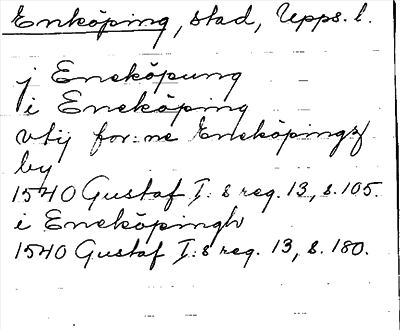 Enköping, stad, Upps. l.
j Eneköpung
i Eneköping
vtij for:ne Eneköpingz
by
1540 Gustaf I:s reg. 13, s. 105.
i Eneköpingh
1540 Gustaf I:s reg. 13, s. 180.